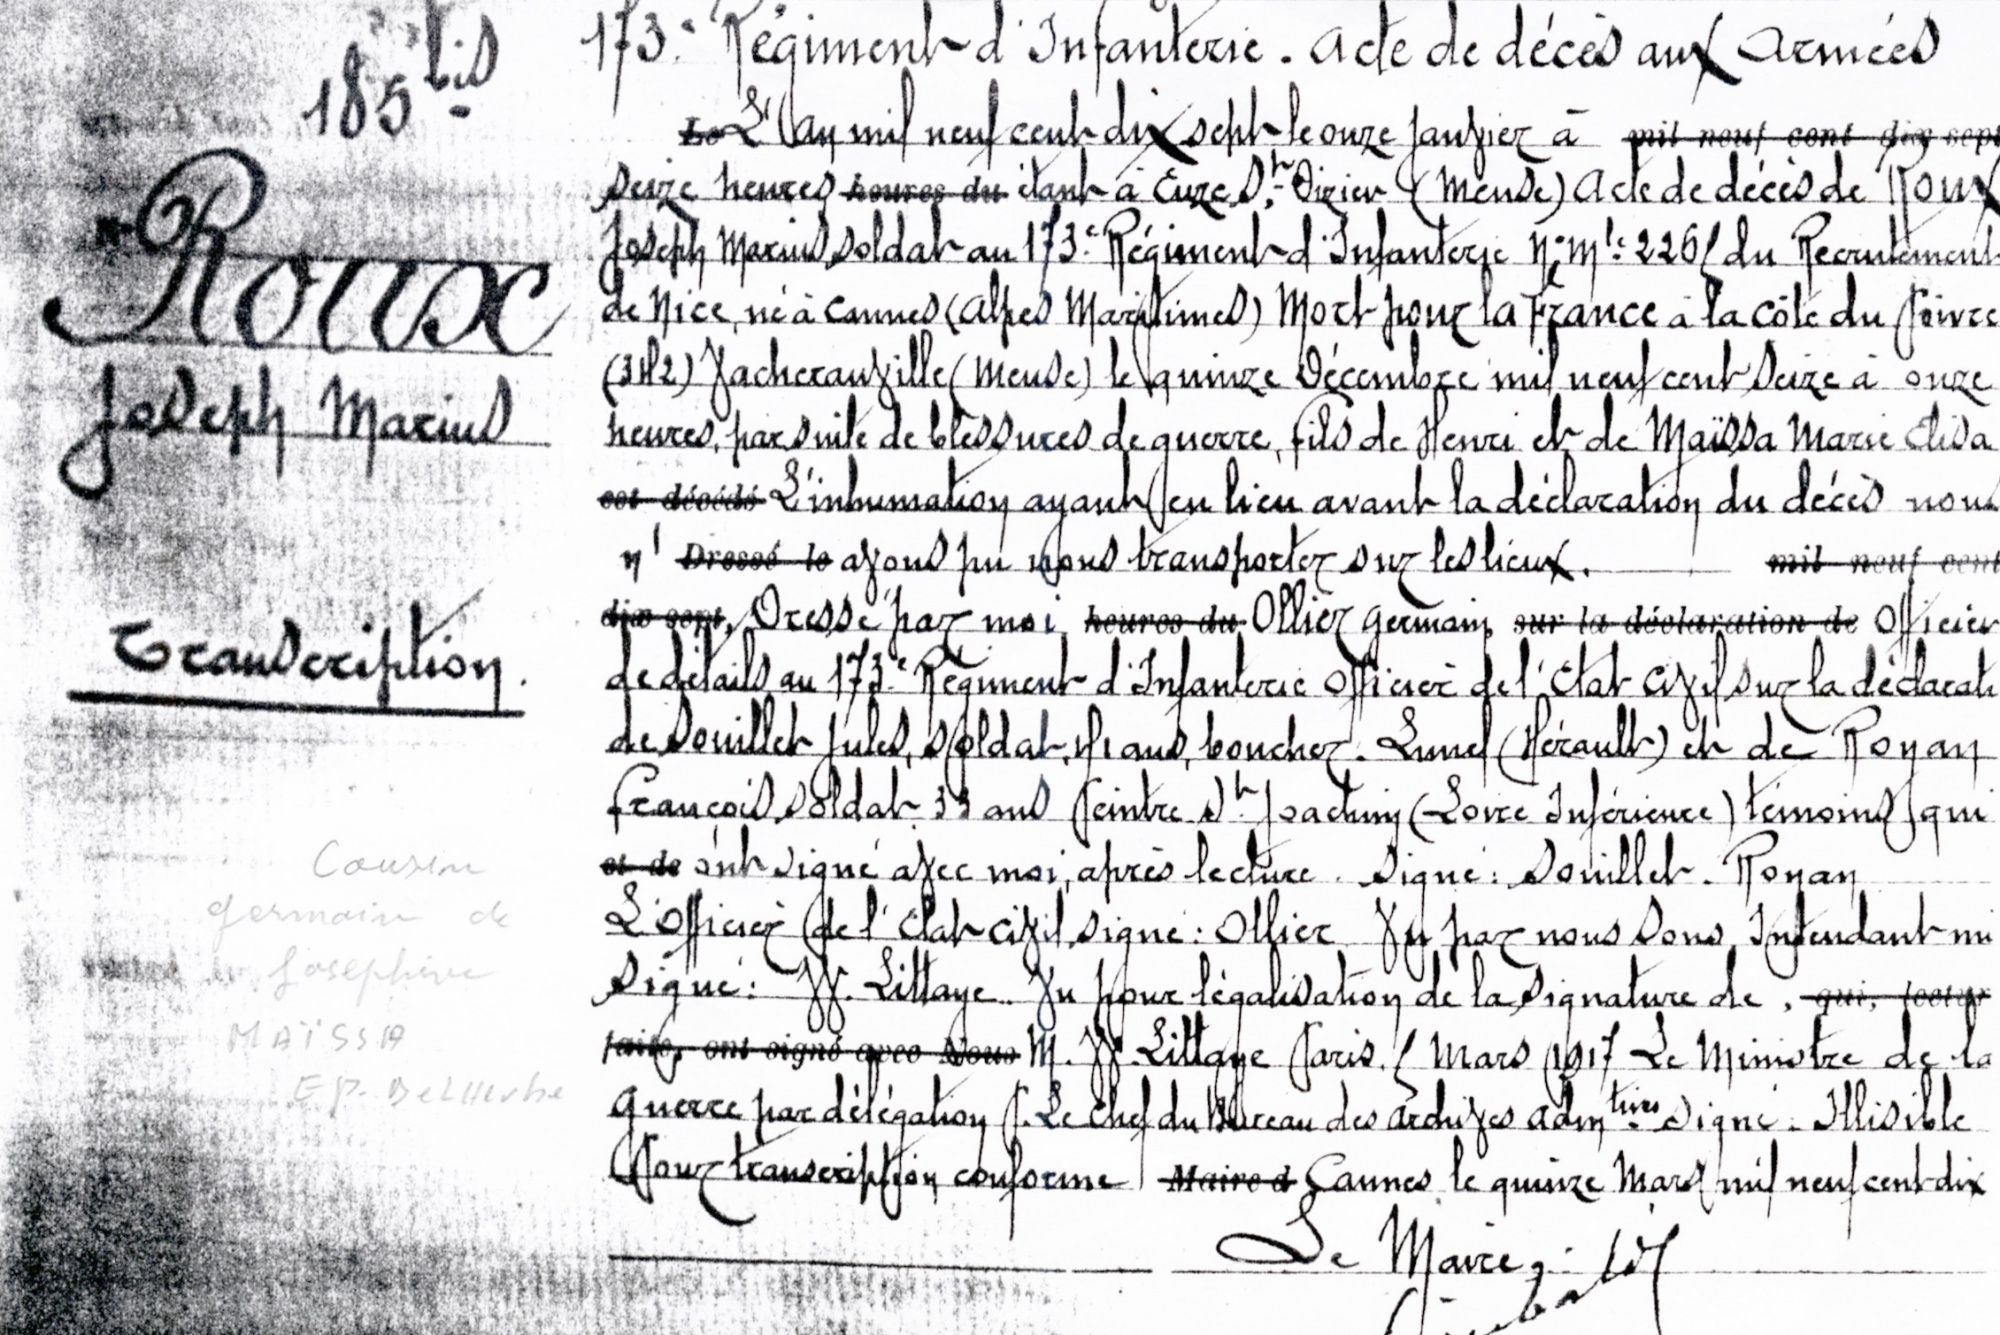 185 bis
Roux
Joseph Marius
Transcription.
Cousin
germain de
Joséphine
MAÏSSA
EP. Delherbe
173e Régiment d'Infanterie. Acte de décès aux Armées
Le L'An mil neuf cent dix sept le onze janvier à mil neuf cent dix sept
seize heures heures du étant à Euze St Dizier (Meuse) Acte de décès de Roux
Joseph Marius soldat au 173e Régiment d'Infanterie No Mle 226 du Recrutement
de Nice, né à Cannes (Alpes Maritimes) Mort pour la France à la côte du Poivre
(342) Vacherauville (Meuse) le quinze Décembre mil neuf cent seize à onze
heures, par suite de blessures de guerre, fils de Henri et de Maïssa Marie Elisa
est décédé L'inhumation ayant eu lieu avant la déclaration du décès nous
n' Dressé le avons pu nous transporter sur les lieux. mil neuf cent
dix sept, Dressé par moi heures du Ollier Germain sur la déclaration de Officier
de détails au 173e Régiment d'Infanterie Officier de l'Etat Civil sur la déclarati
de Souillet Jules, soldat, 41 ans, boucher. Lunel (Hérault) et de Royan
François soldat 33 ans Peintre St Joachim (Loire Inférieure) témoins qui
et de ont signé avec moi, après lecture. Signé: Souillet. Royan
L'Officier de l'Etat Civil, signé: Ollier Vu par nous Sous Intendant mi
Signé: W. Littaye. Vu pour légalisation de la signature de, qui, lecture
faite, ont signé avec Nous M. W. Littaye Paris. 5 Mars 1917 Le Ministre de la
Guerre par délégation P. Le Chef du Bureau des Archives Admtives Signé. Illisible
Pour transcription conforme Maire d Cannes, le quinze Mars mil neuf cent dix
Le Maire: